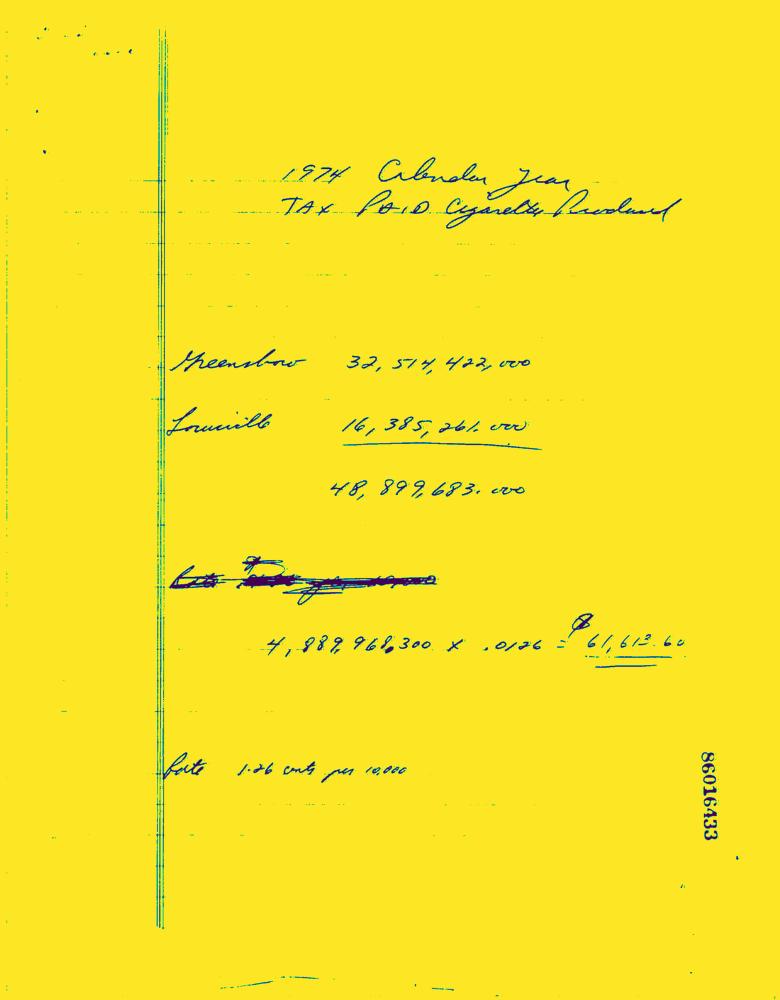 1974 Calendar Year
TAX PAID Cigarettes Produced
Greensboro 32,514,422,000
Louisville 16,385,261.000
48,899,683.000
4,889,968,300 x .0126 = $61,613.60
Rate 1.26 cents per 10,000
86016433